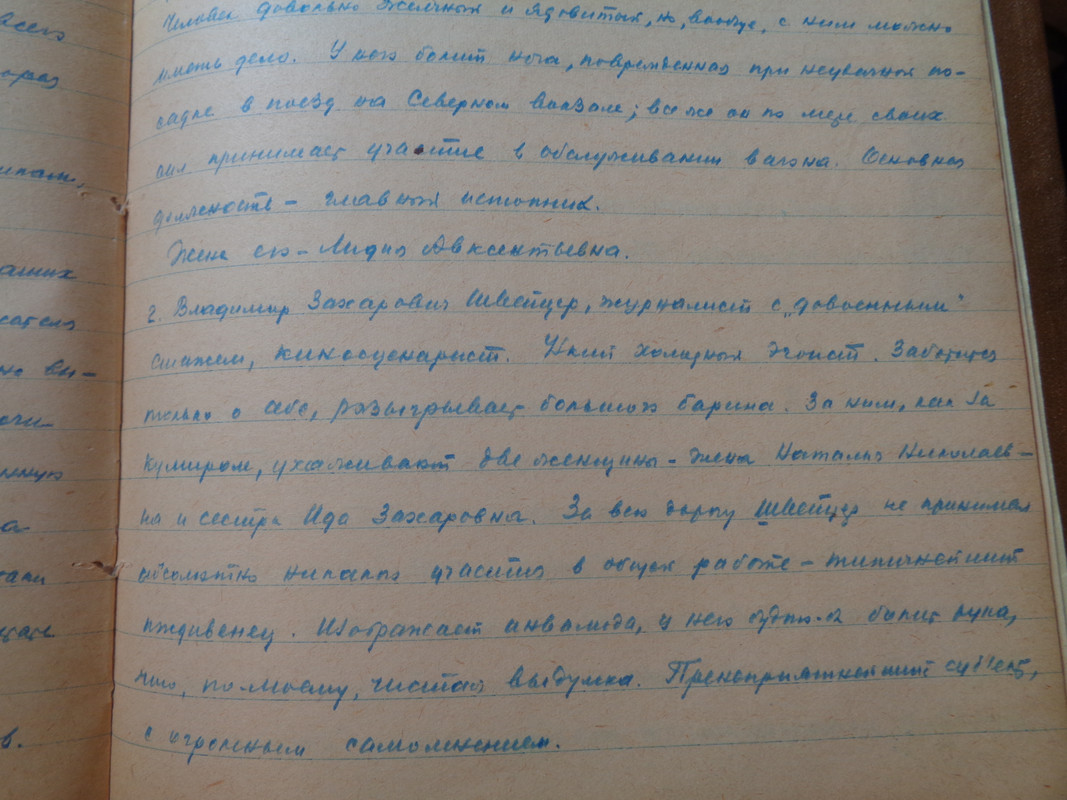 человек довольно желчный и ядовитый, но, вообще, с ним можно
иметь дело. У него болит нога, поврежденная при неудачной по-
садке в поезд на Северном вокзале; все же он по мере своих
сил принимает участие в обслуживании вагона. Основная
должность – главный истопник.
Жена его – Лидия Авксентьевна.
2. Владимир Захарович Швейцер, журналист с „довоенным"
стажем, киносценарист. Холодный эгоист. Заботится
только о себе, разыгрывает большого барина. За ним, как за
кумиром, ухаживают две женщины – жена Наталья Николаев-
на и сестра Ида Захаровна. За всю дорогу Швейцер не принимал
абсолютно никакого участия в общей работе – типичнейший
иждивенец. Изображает инвалида, у него будто-бы болит рука,
но, по-моему, чистая выдумка. Пренеприятнейший субъект,
с огромным самомнением.
всего
ших
вы-
а
в.